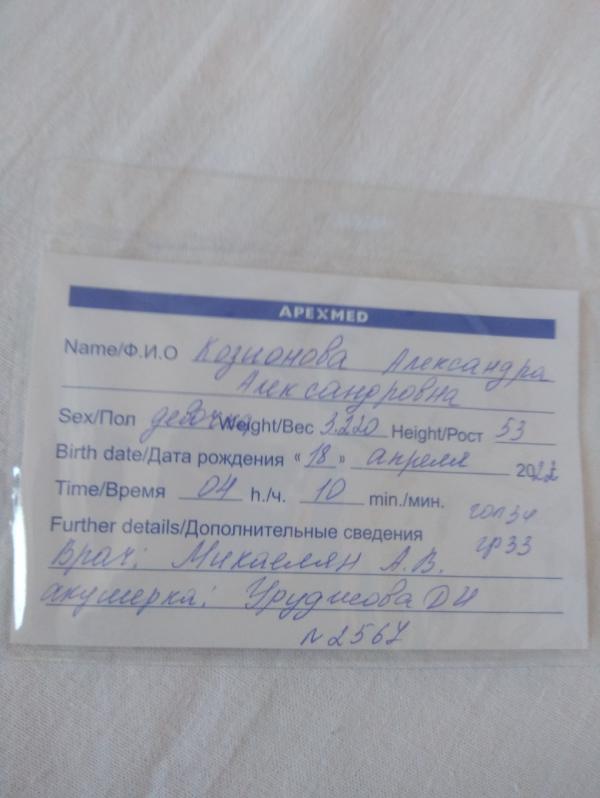 APEXMED
Name/Ф.И.О Козионова Александра
Александровна
Sex/Пол девочка Weight/Вес 3.220 Height/Рост 53
Birth date/Дата рождения "18" апреля 2022
Time/Время 04 h./ч. 10 min./мин.
гол 34
Further details/Дополнительные сведения гр 33
Врач: Микаелян А.В.
акушерка: ДИ
№2567